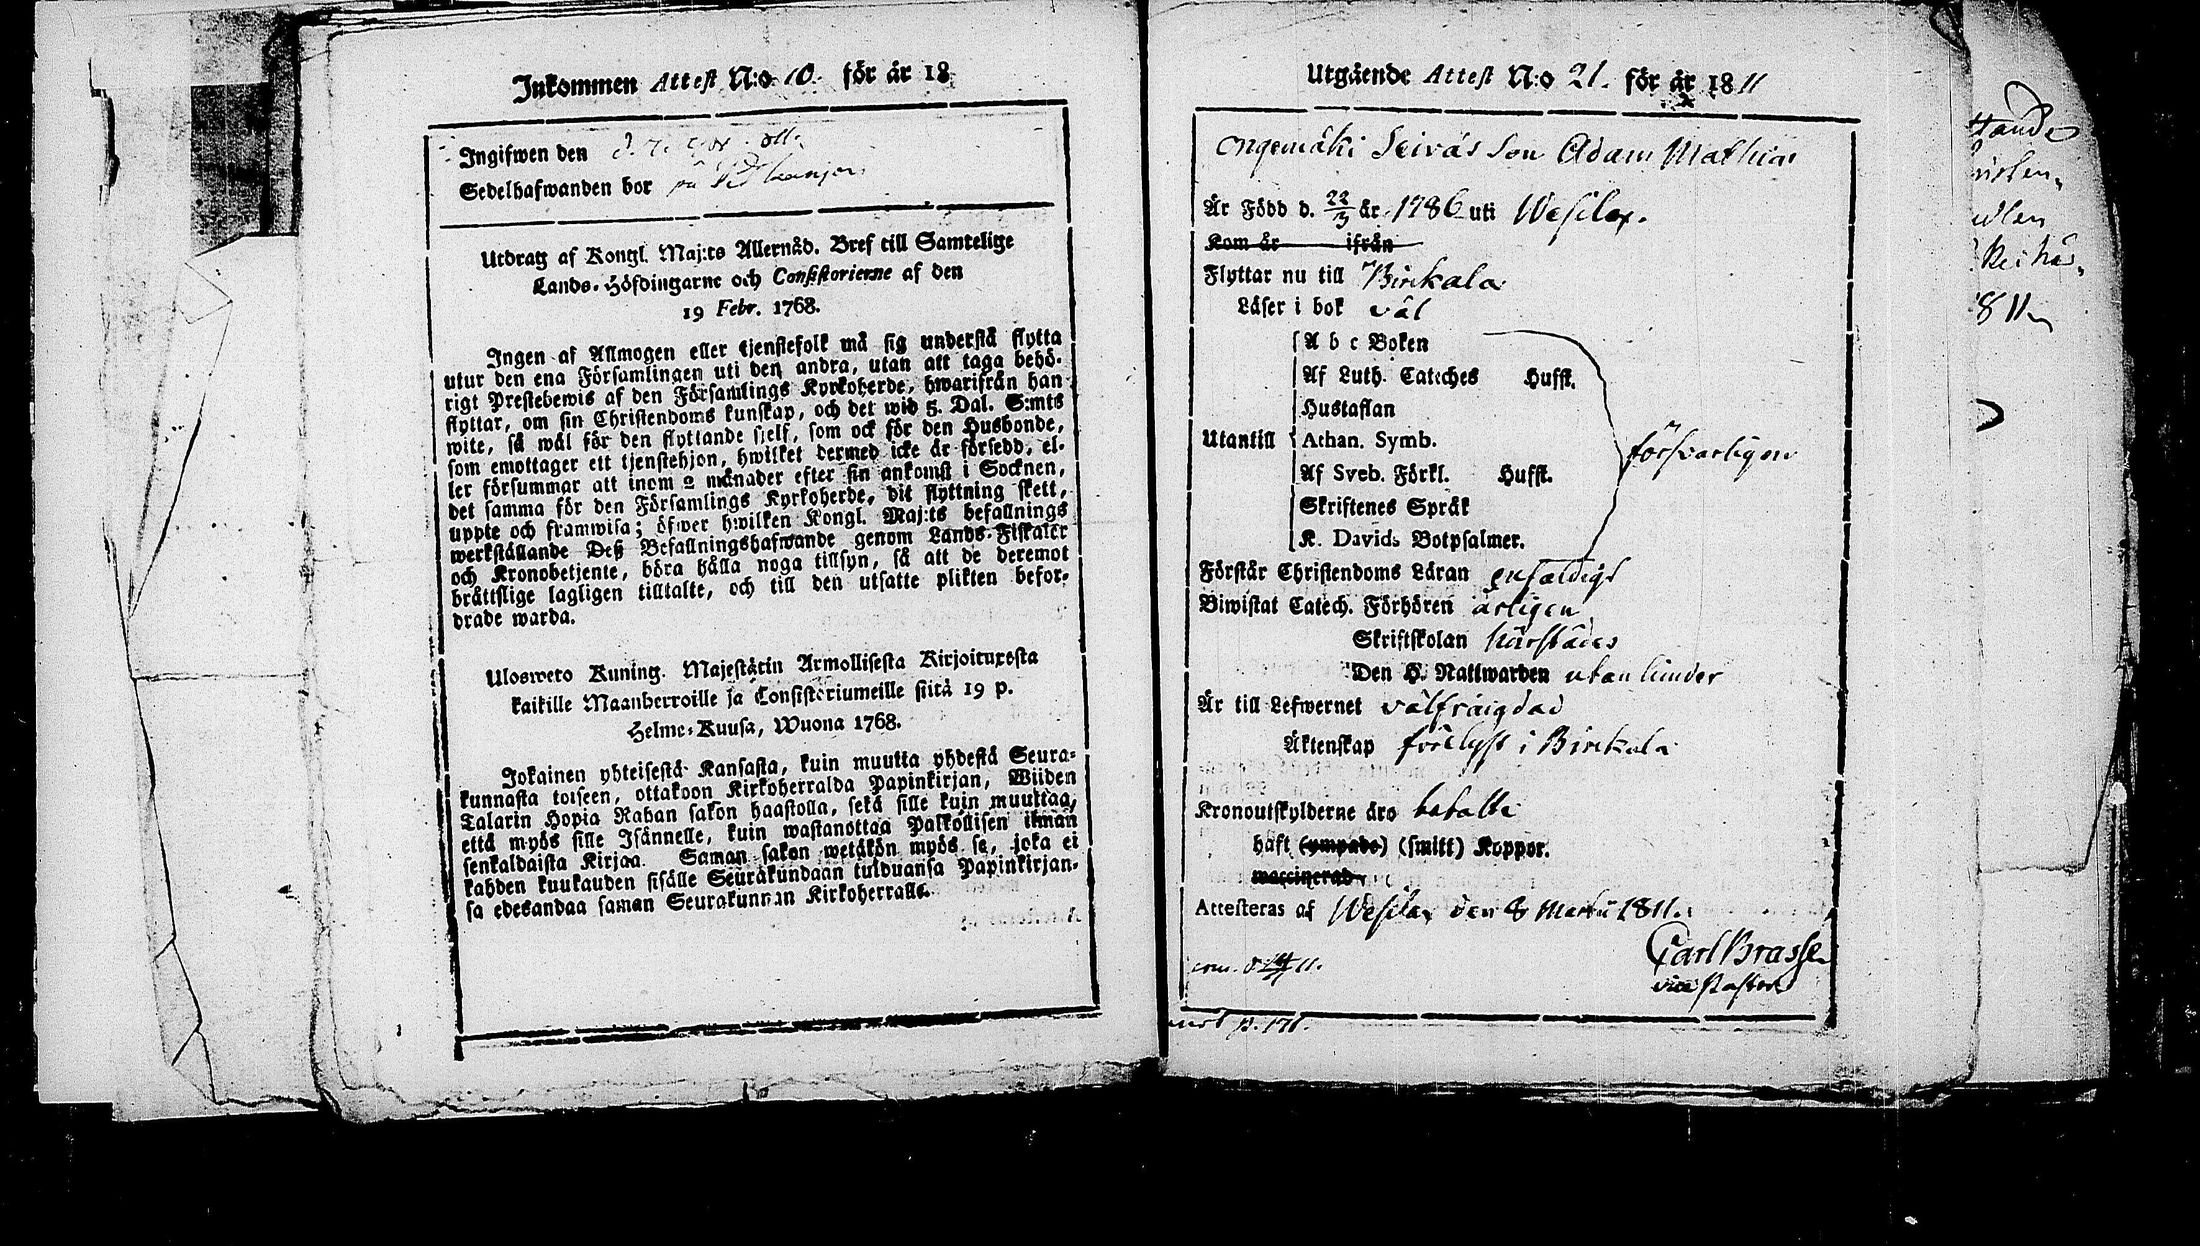 Inkommen Attest N:o 10. för år 18
Ingifwen den
Sedelhafwanden bor på
Utdrag af Kongl. Maj:ts Allernåd. Bref till Samtelige
Lands-Höfdingarne och Consistorierne af den
19 Febr. 1768.
Ingen af Allmogen eller tjenstefolk må sig understå flytta
utur den ena Församlingen uti den andra, utan att taga behö-
rigt Prestebewis af den Församlings Kyrkoherde, hwarifrån han
flyttar, om sin Christendoms kunskap, och det wid 5. Dal. S:mts
wite, så wäl för den flyttande sjelf, som ock för den Husbonde,
som emottager ett tjenstehjon, hwilket dermed icke är försedd, el-
ler försummar att inom 2 månader efter sin ankomst i Socknen,
det samma för den Församlings Kyrkoherde, dit flyttning skett,
uppte och framwisa; öfwer hwilken Kongl. Maj:ts befallnings
werkställande Deß Befallningshafwande genom Lands-Fiskaler
och Kronobetjente, böra hålla noga tillsyn, så att de deremot
brättslige lagligen tilltalte, och till den utsatte plikten befor-
drade warda.
Ulosweto Kuning. Majestätin Armollisesta Kirjoituxesta
kaikille Maanherroille ja Consistoriumeille siitä 19 p.
Helme-Kuusa, Wuona 1768.
Jokainen yhteisestä Kansasta, kuin muutta yhdestä Seura-
kunnasta toiseen, ottakoon Kirkoherralda Papinkirjan, Wiiden
Talarin Hopia Rahan sakon haastolla, sekä sille kuin muuttaa,
että myös sille Isännelle, kuin wastanottaa Palkollisen ilman
senkaldaista Kirjaa. Saman sakon wetäkön myös se, joka ei
kahden kuukauden sisälle Seurakundaan tulduansa Papinkirjan-
sa edesandaa saman Seurakunnan Kirkoherralle.
Utgående Attest N:o 21. för år 1811
Seiväs Son Adam Mathias
Är Född d. 22/3 år 1786 uti Wesilax.
Kom år ifrån
Flyttar nu till Birkala
Läser i bok väl
A b c Boken
Af Luth. Cateches Hufst.
Hustaflan
Utantill Athan. Symb. försvarligen
Af Sveb. Förkl. Hufst.
Skriftenes Språk
K. Davids Botpsalmer.
Förstår Christendoms Läran enfaldigt
Biwistat Catech. Förhören årligen
Skriftskolan härstädes
Den H. Nattwarden utan hinder
Är till Lefwernet välfräigdad
Äktenskap förelyst i Birkala
Kronoutskylderne äro betalte
haft (ympade) (smitt) Koppor.
waccinerad
Attesteras af Wesilax den 8 Martii 1811.
Carl Brasse
vice Pastor
p. 171.
1811